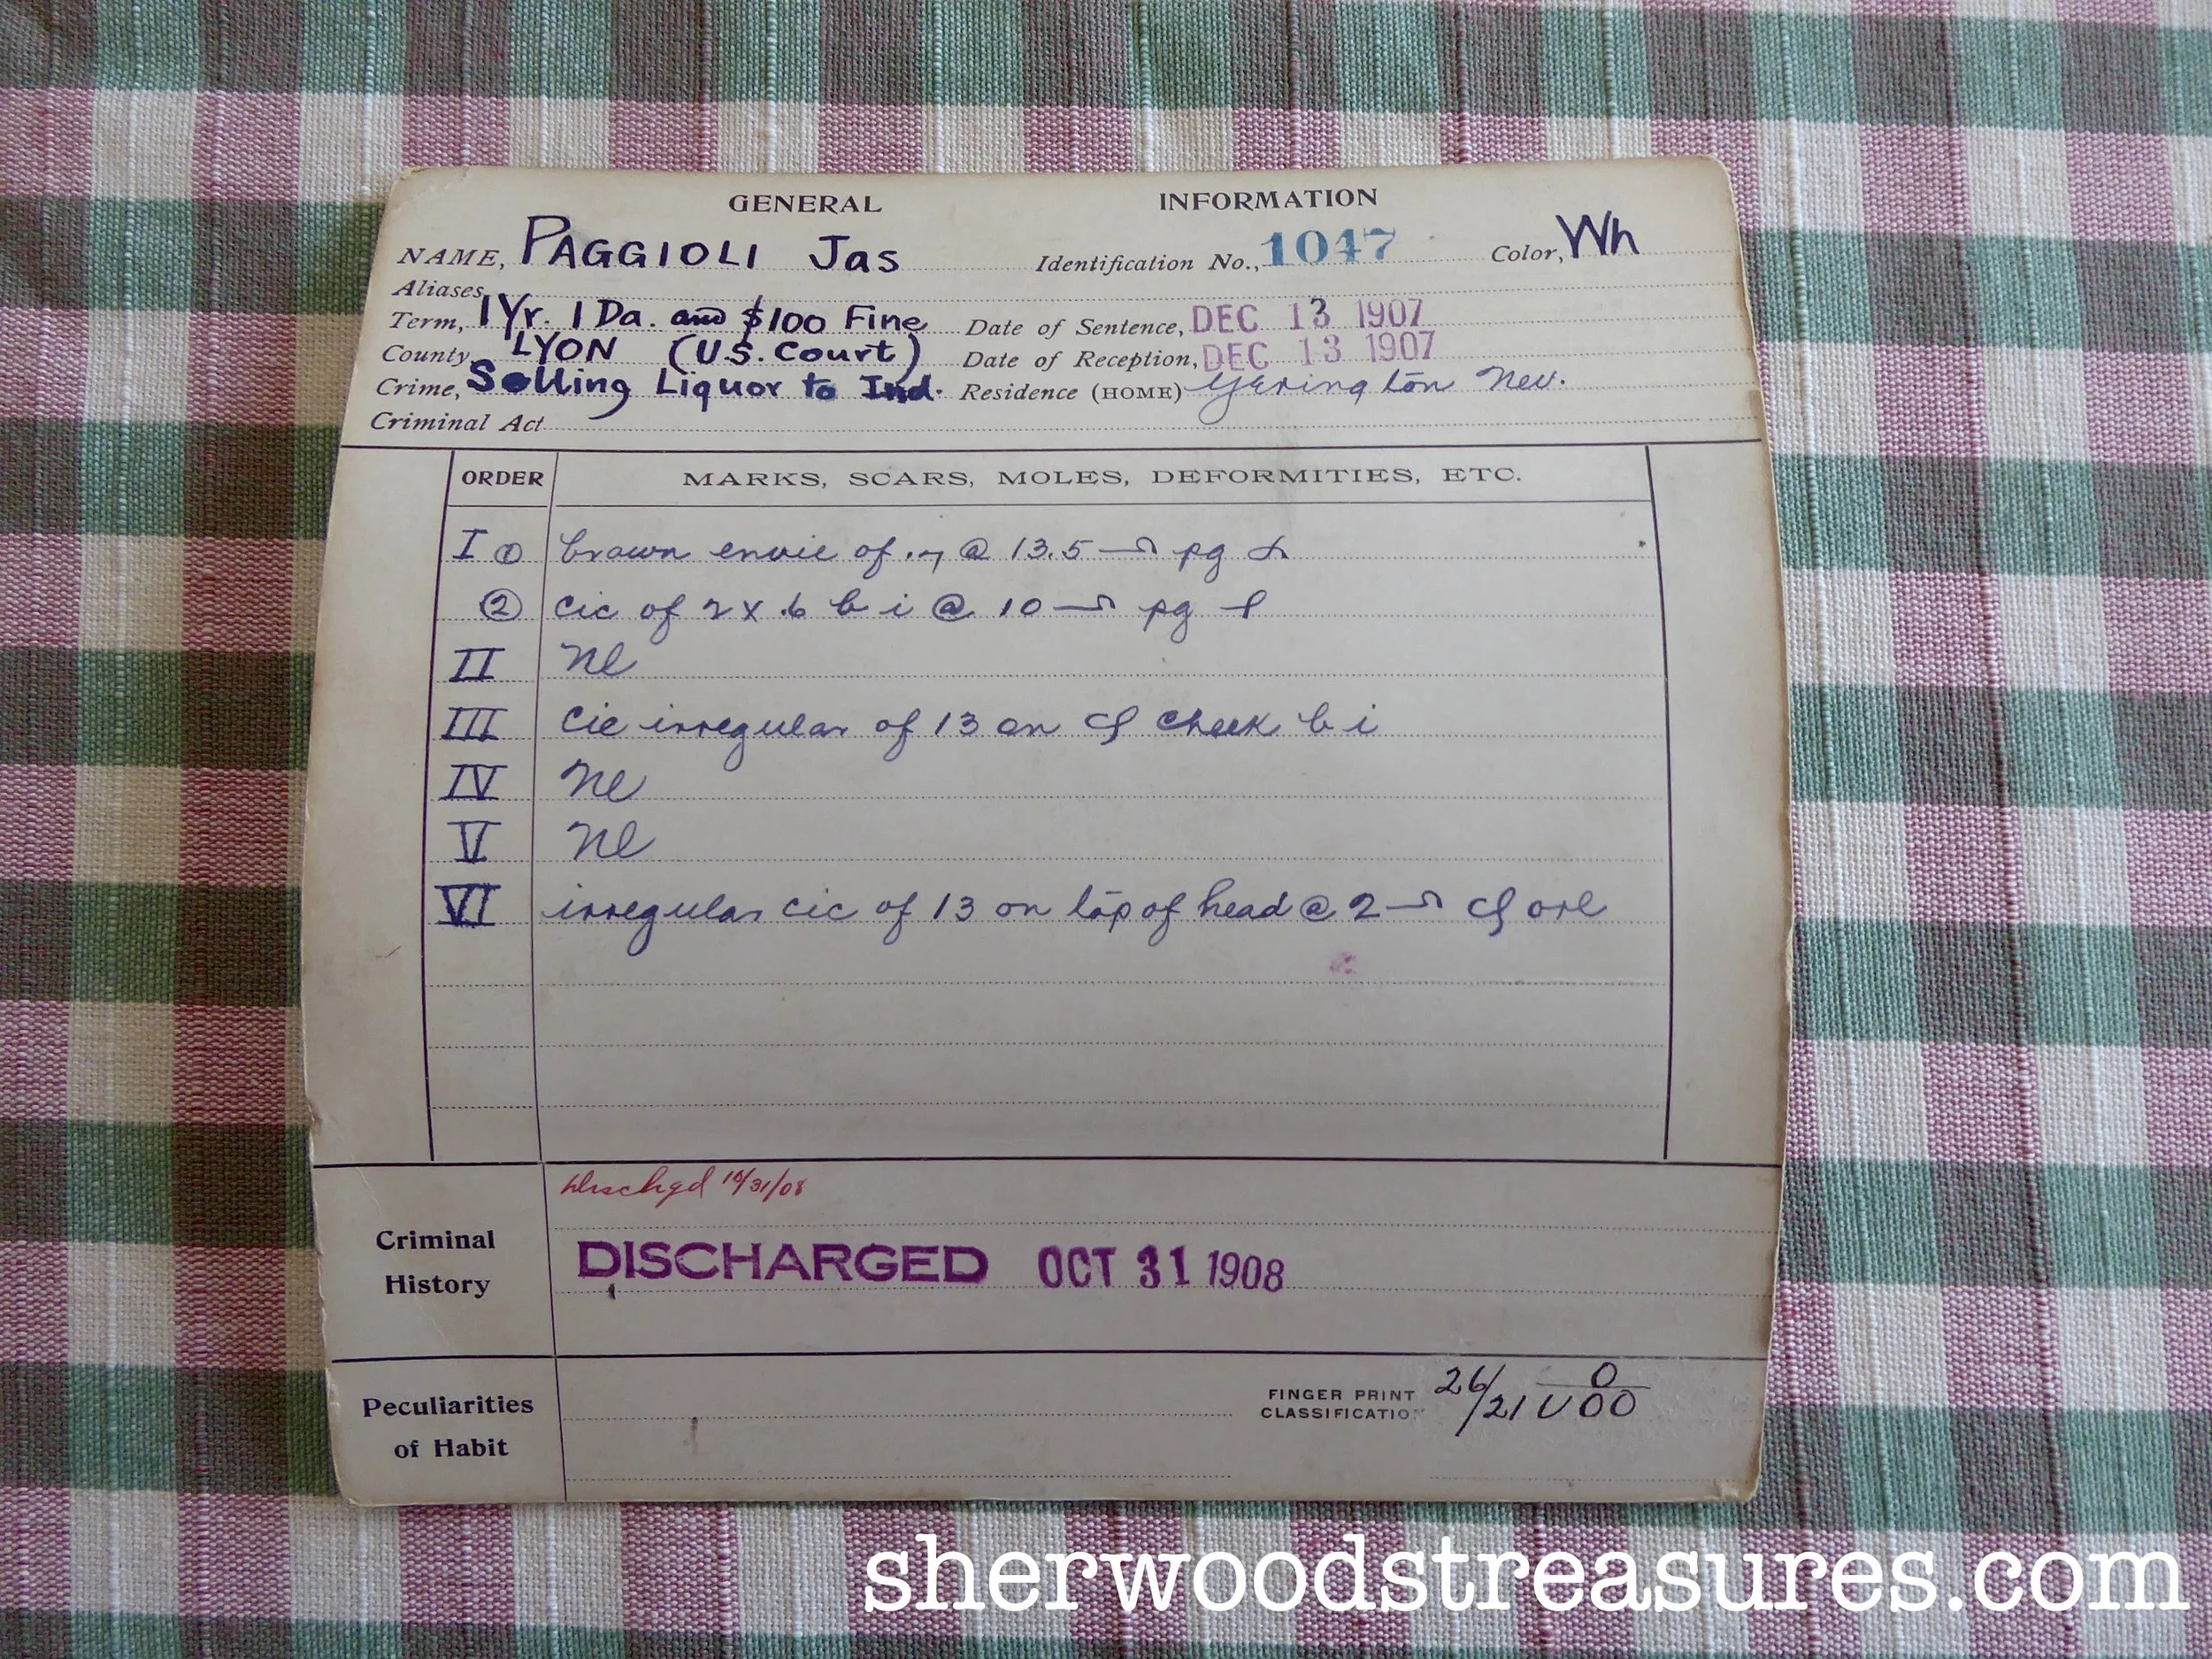 GENERAL INFORMATION
NAME, PAGGIOLI Jas Identification No., 1047 Color, Wh
Aliases,
Term, 1 Yr. 1 Da. and $100 Fine Date of Sentence, DEC 13 1907
County, LYON (U.S. Court) Date of Reception, DEC 13 1907
Crime, Selling Liquor to Ind. Residence (HOME) Yerington Nev.
Criminal Act
ORDER MARKS, SCARS, MOLES, DEFORMITIES, ETC.
I ① brown envie of @ 13.5 pg
② cic of 2 x .6 b i @ 10 pg
II Ne
III cic irregular of 13 on cheek b i
IV Ne
V Ne
VI irregular cic of 13 on top of head @ 2
Criminal History
Dischgd 10/31/08
DISCHARGED OCT 31 1908
Peculiarities of Habit
FINGER PRINT CLASSIFICATION 26/21 0 U00
sherwoodstreasures.com